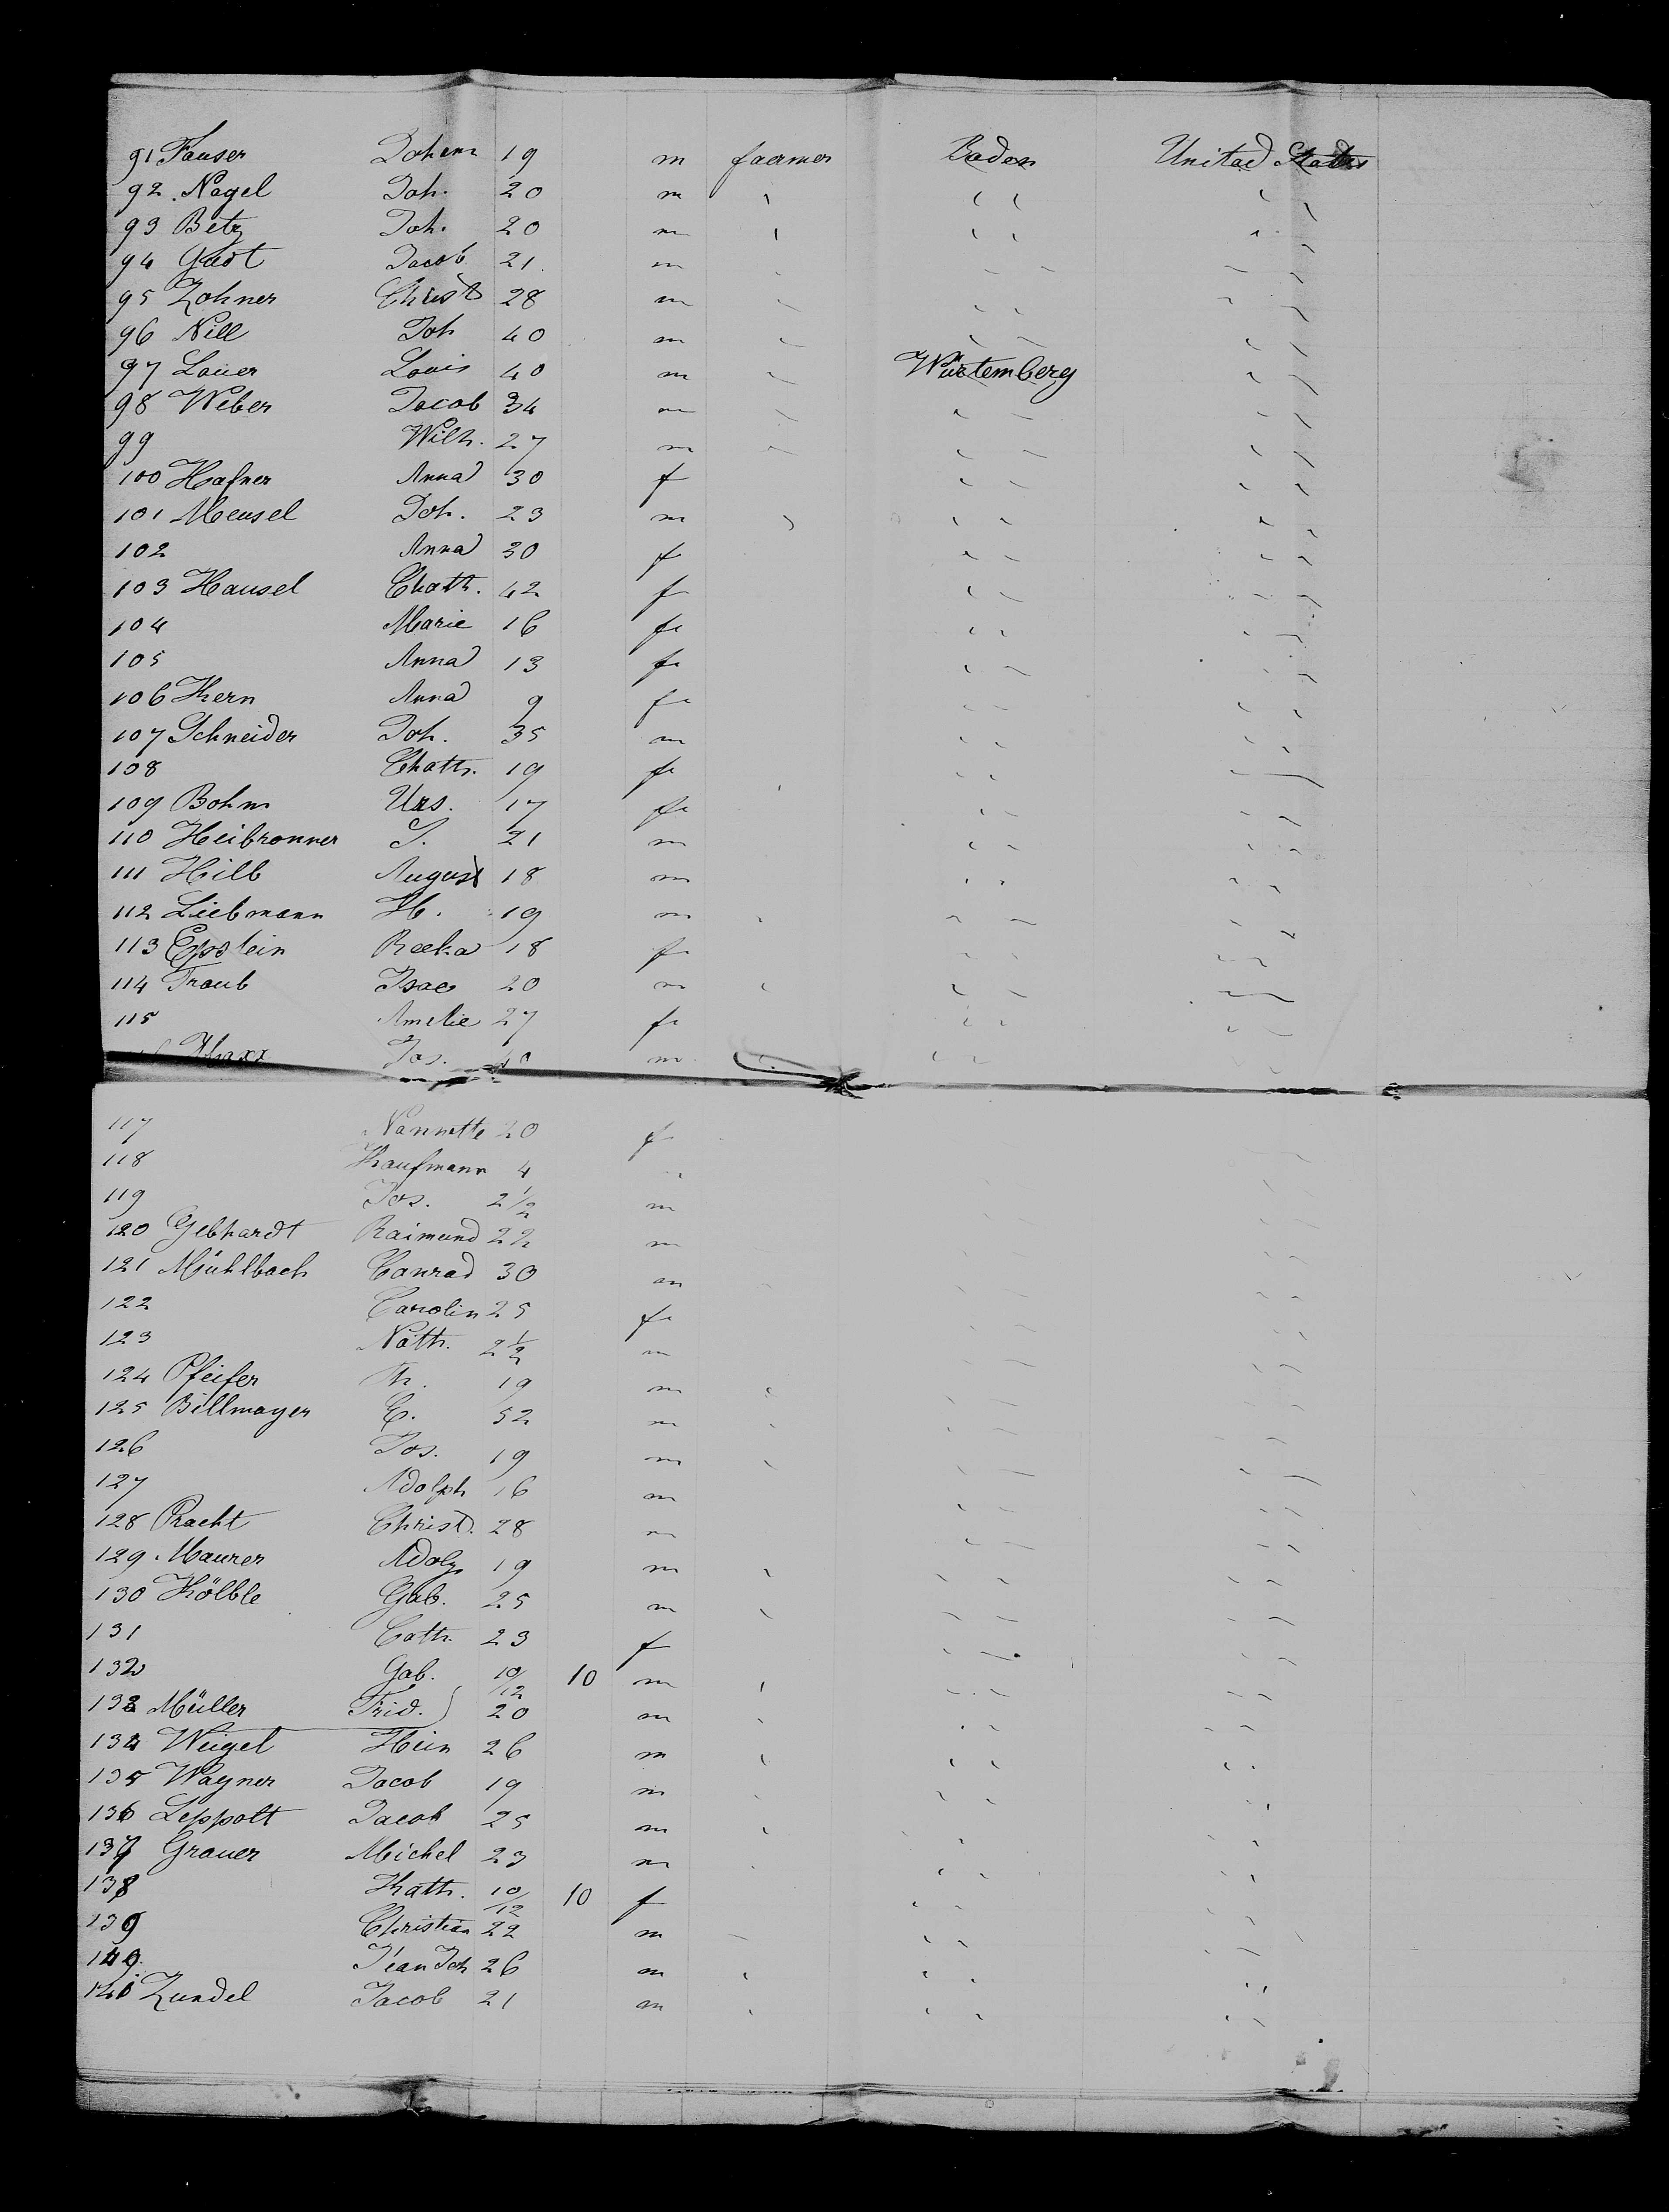 91 Fauser Johann 19 m faermer Baden Unitad States
92 Nagel Joh. 20 m " " " " "
93 Betz Joh. 20 m " " " " "
94 Jacob 21. m " " " " "
95 Zohner Christ 28 m " " " " "
96 Nill Joh 40 m " " " " "
97 Lauer Louis 40 m " Würtemberg " "
98 Weber Jacob 34 m " " " " "
99 Wilh. 27 m " " " " "
100 Hafner Anna 30 f " " " "
101 Mensel Joh. 23 m " " " " "
102 Anna 30 f " " " "
103 Hausel Chath. 42 f " " " "
104 Marie 16 f " " " "
105 Anna 13 f " " " "
106 Kern Anna 9 f " " " "
107 Schneider Joh. 35 m " " " "
108 Chath. 19 f " " " "
109 Bohm Urs. 17 f " " " "
110 Heibronner S. 21 m " " " "
111 Hilb August 18 m " " " "
112 Liebmann H. 19 m " " " " "
113 Epstein Reeka 18 f " " " "
114 Traub Isac 20 m " " " " "
115 Amelie 27 f " " " "
Jos. 40 m " " "
117 Nannette 20 f
118 Kaufmann 4 m
119 Jos. 2 1/2 m
120 Gebhardt Raimund 22 m
121 Mühlbach Conrad 30 m " " " "
122 Carolin 25 f " " " "
123 Nath. 2 1/2 m " " " "
124 Pfeifer Th. 19 m " " " " "
125 Billmayer C. 52 m " " " " "
126 Jos. 19 m " " " " "
127 Adolph 16 m " " " "
128 Pracht Christ. 28 m " " " "
129 Maurer Adolf 19 m " " " " "
130 Kölble Gab. 25 m " " " " "
131 Cath. 23 f " " " "
132 Gab. 10/12 10 m " " " " "
133 Müller Frid. 20 m " " " " "
134 Weigel Hein 26 m " " " " "
135 Wagner Jacob 19 m " " " " "
136 Leppolt Jacob 25 m " " " " "
137 Grauer Michel 23 m " " " "
138 Kath. 10/12 10 f " " " "
139 Christian 22 m " " " " "
140 Jean Joh 26 m " " " " "
141 Zundel Jacob 21 m " " " " "